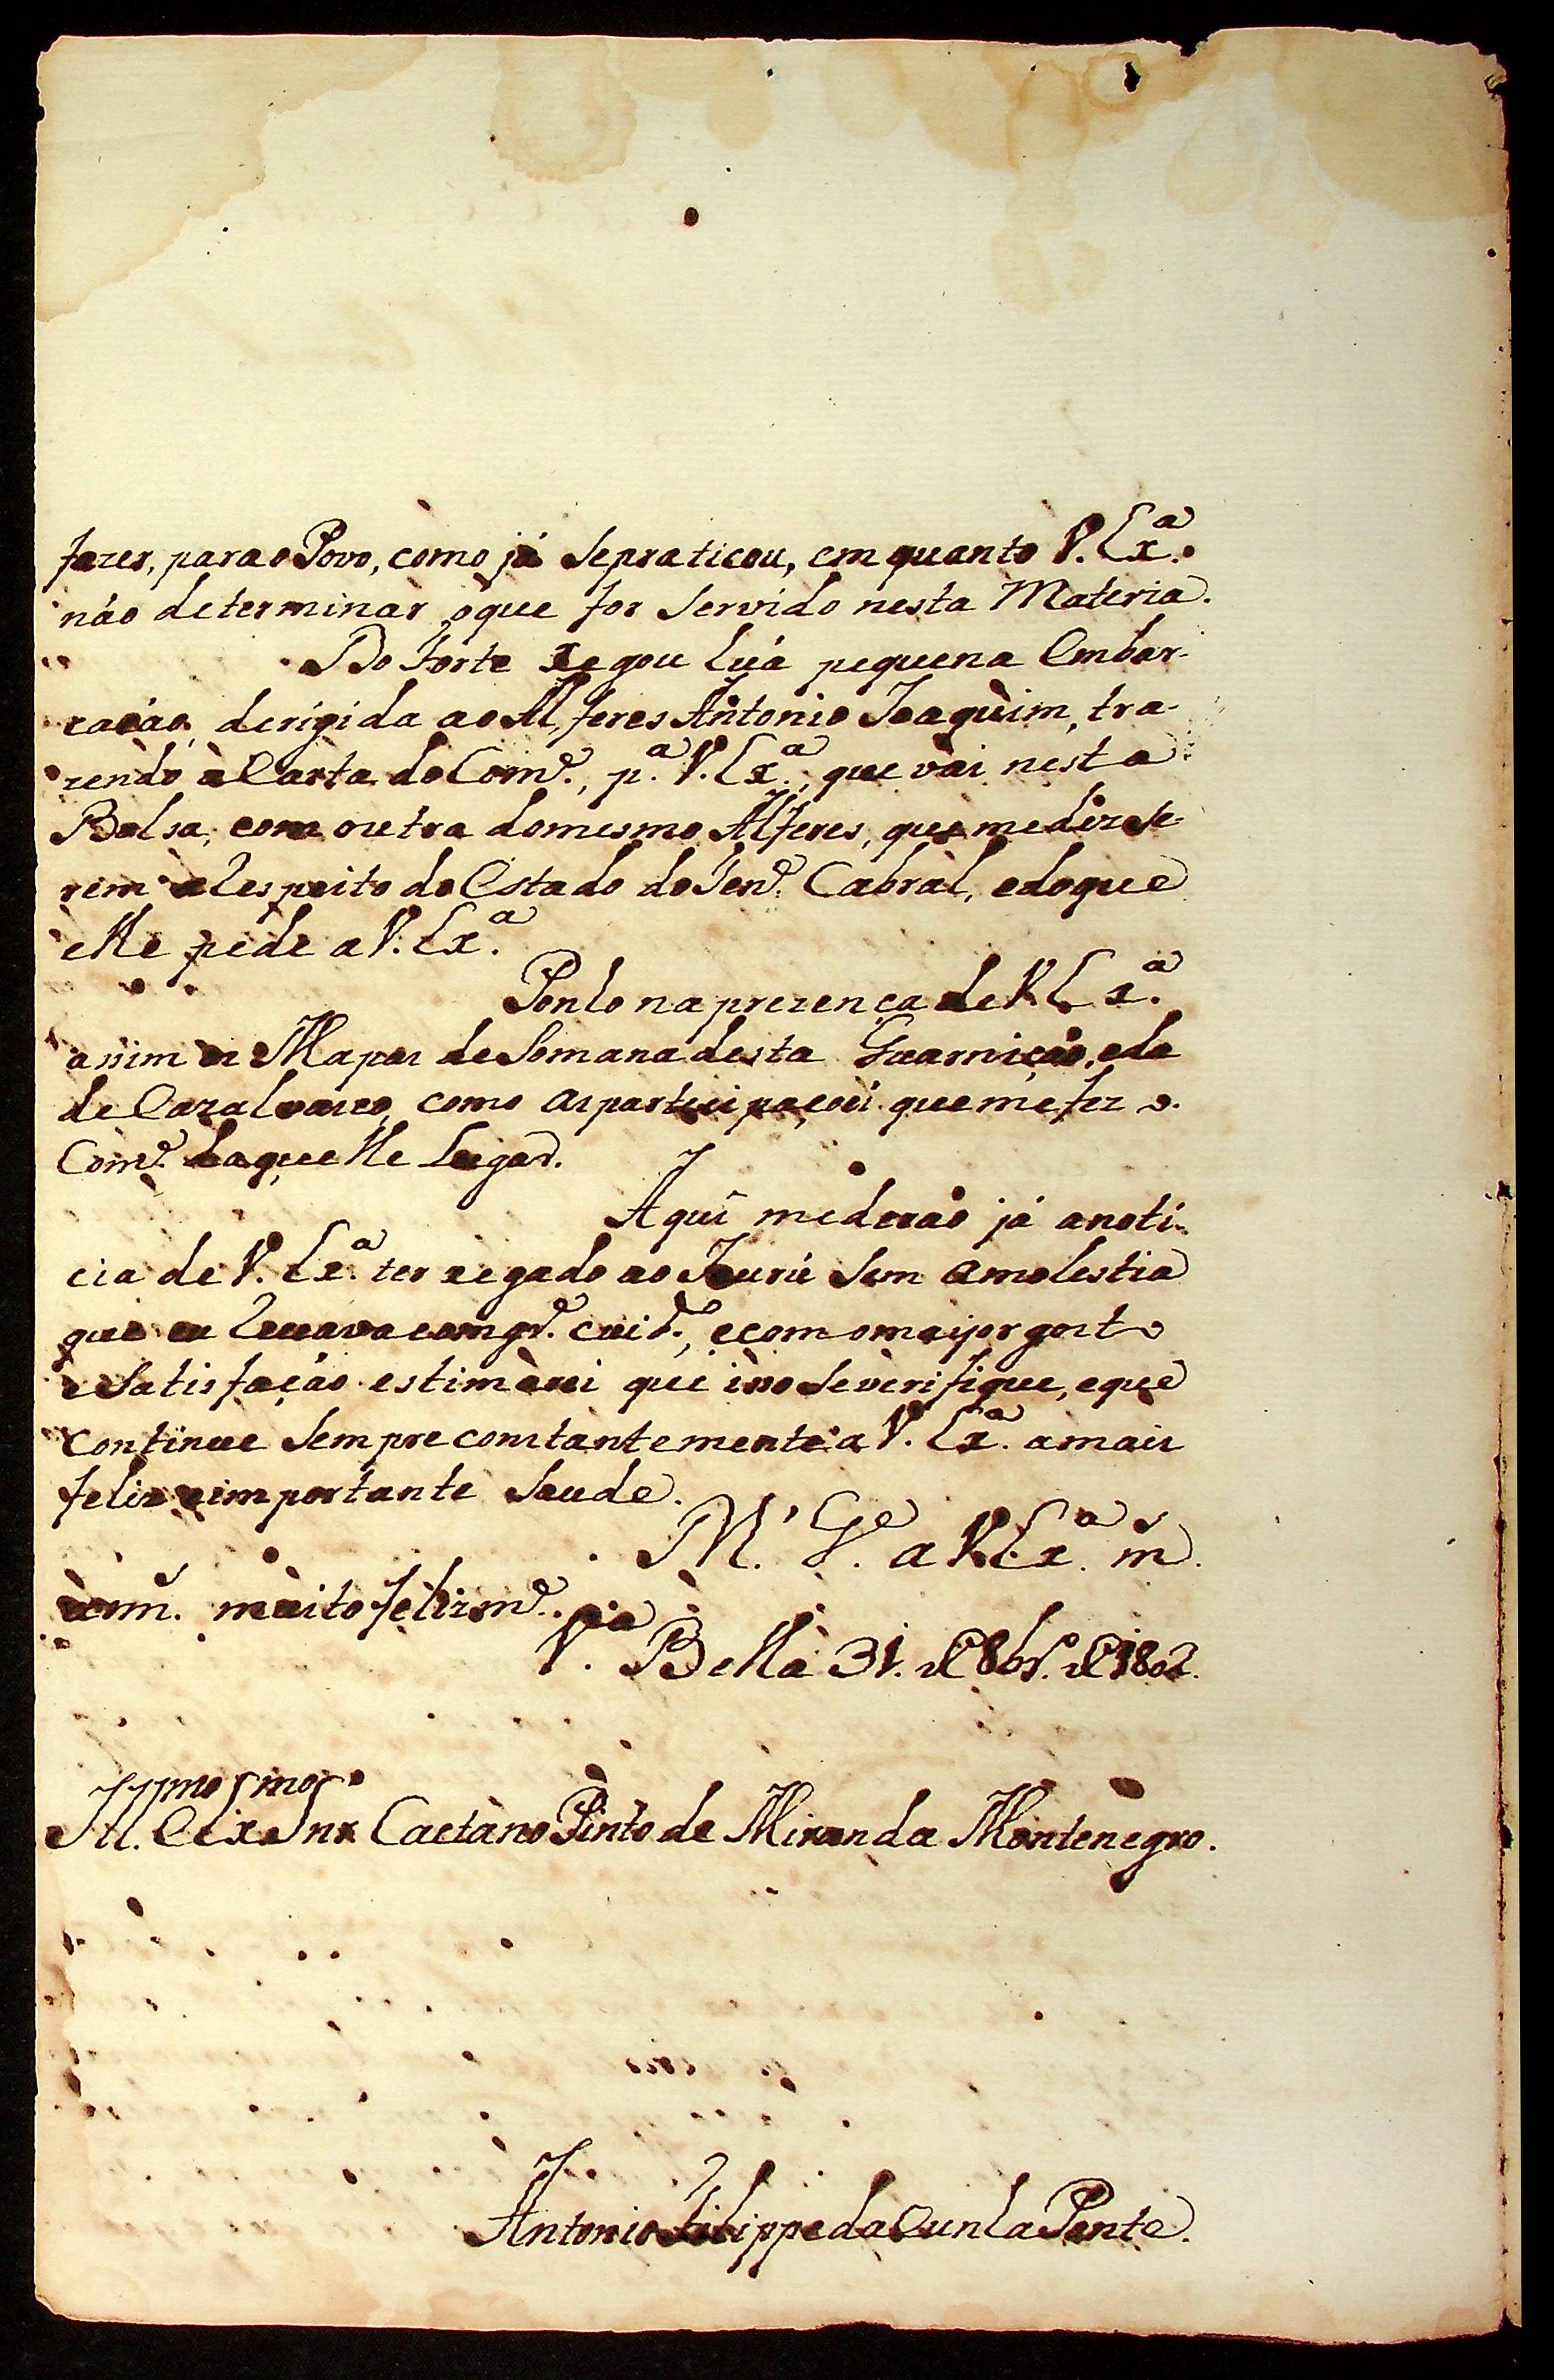 fazer, para o Povo, como já Sepraticou, em quanto V. Exª.
não determinar oque for Servido nesta Materia.
Do Forte xegou huá pequena Embar-
cação, derigida ao Alferes Antonio Joaquim, tra-
zendo a Carta do Comᵉ., pª. V. Exª., que vai nesta
Bolsa, com outra domesmo Alferes, que mediz Se-
rem aRespeito do Estado do Tenᵉ. Cabral, edoque
elle pede a V. Exª.
Ponho na prezença de V. Exª.
assim os Mapas de Semana desta Guarnição, eda
de Cazalvasco, como as participaçoés que me fez o
Comᵉ. daquelle Lugar.
Aqui mederaõ já anoti-
cia de V. Exª. ter xegado ao Jaurú Sem amolestia
que eu com gᵈᵉ. cuidᵒ., ecom omayor gosto
e Satisfação estimarei que isso Severifique, eque
continue Sempre constantemente a V. Exª. amais
feliz eimportante Saude.
Gᵉ a V. Exª. mˢ.
annˢ. muito felizmᵉ.
Vª. Bella 31. de 8bʳᵒ. de 1802.
Illᵐᵒ e Exᵐᵒ Snr Caetano Pinto de Miranda Montenegro.
Antonio Filippe da Cunha Ponte.